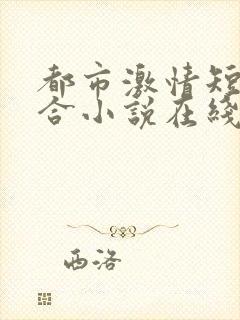 都市激情短
合小說在綫
西洛